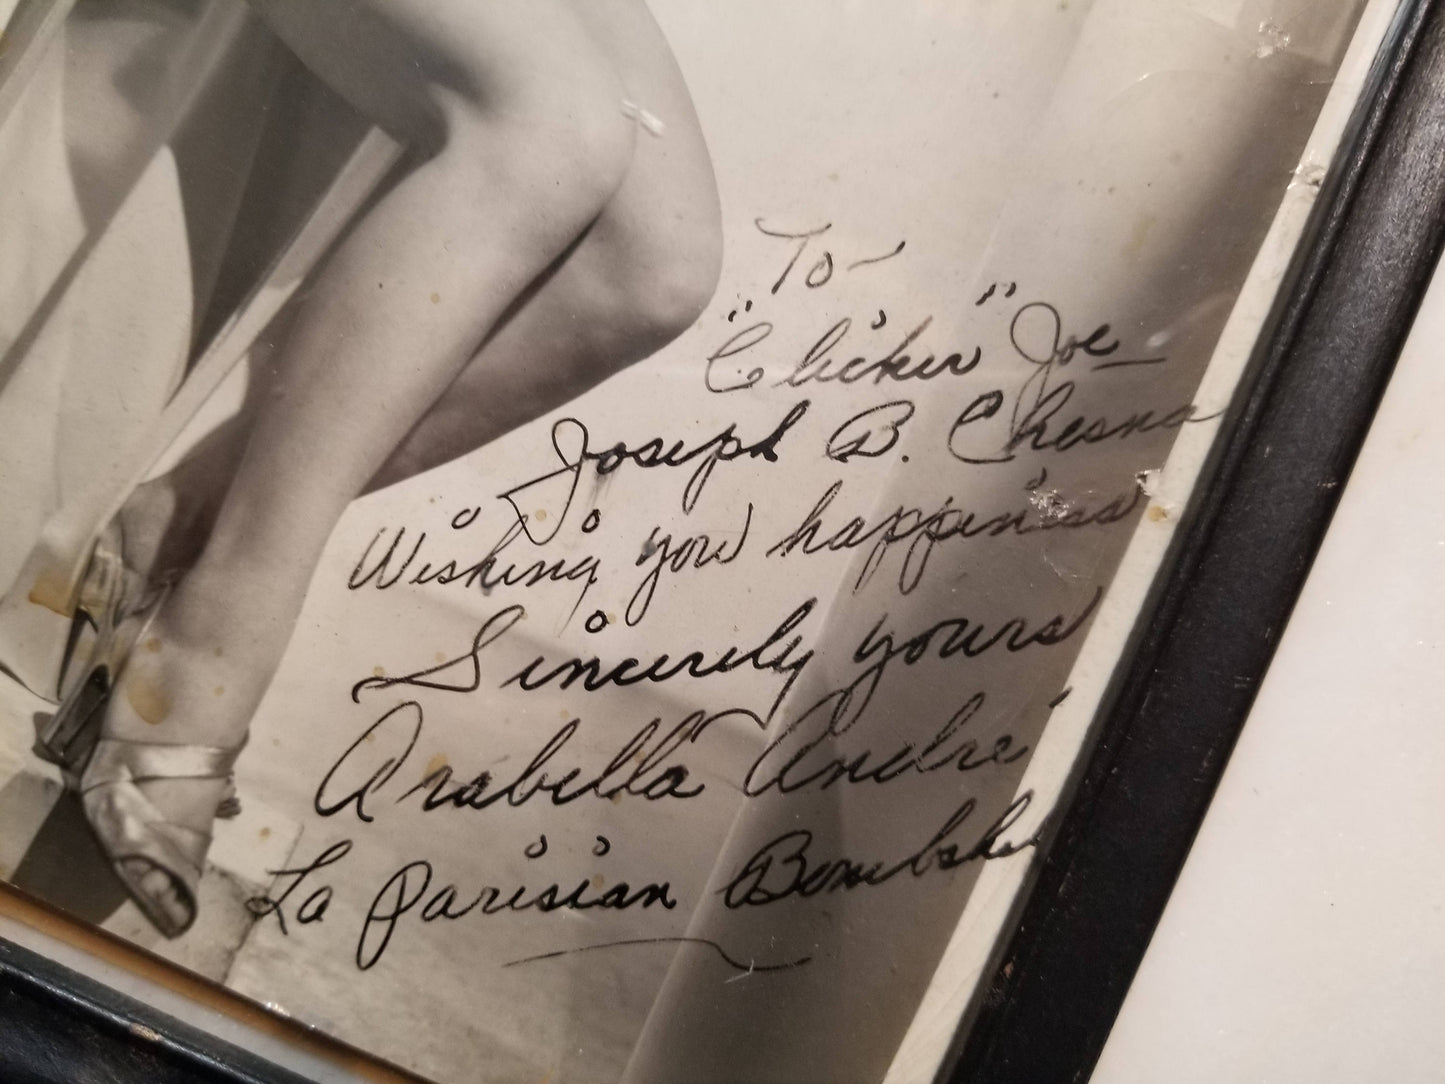 To-
"Clicker" Joe
Joseph B. Chesna
Wishing you happiness
Sincerely yours
Arabella André
La Parisian Bombshel